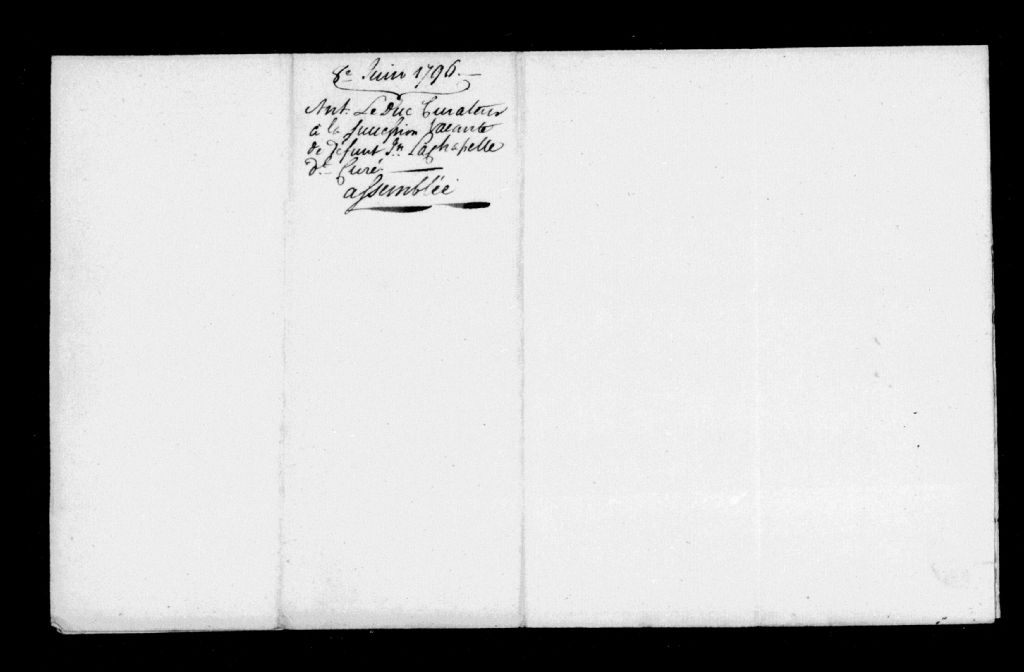 8e Juin 1796.—
Ant. Le Duc Curateur
à la succession Vacante
de défunt Jn Lachapelle
dt Curé
assemblée